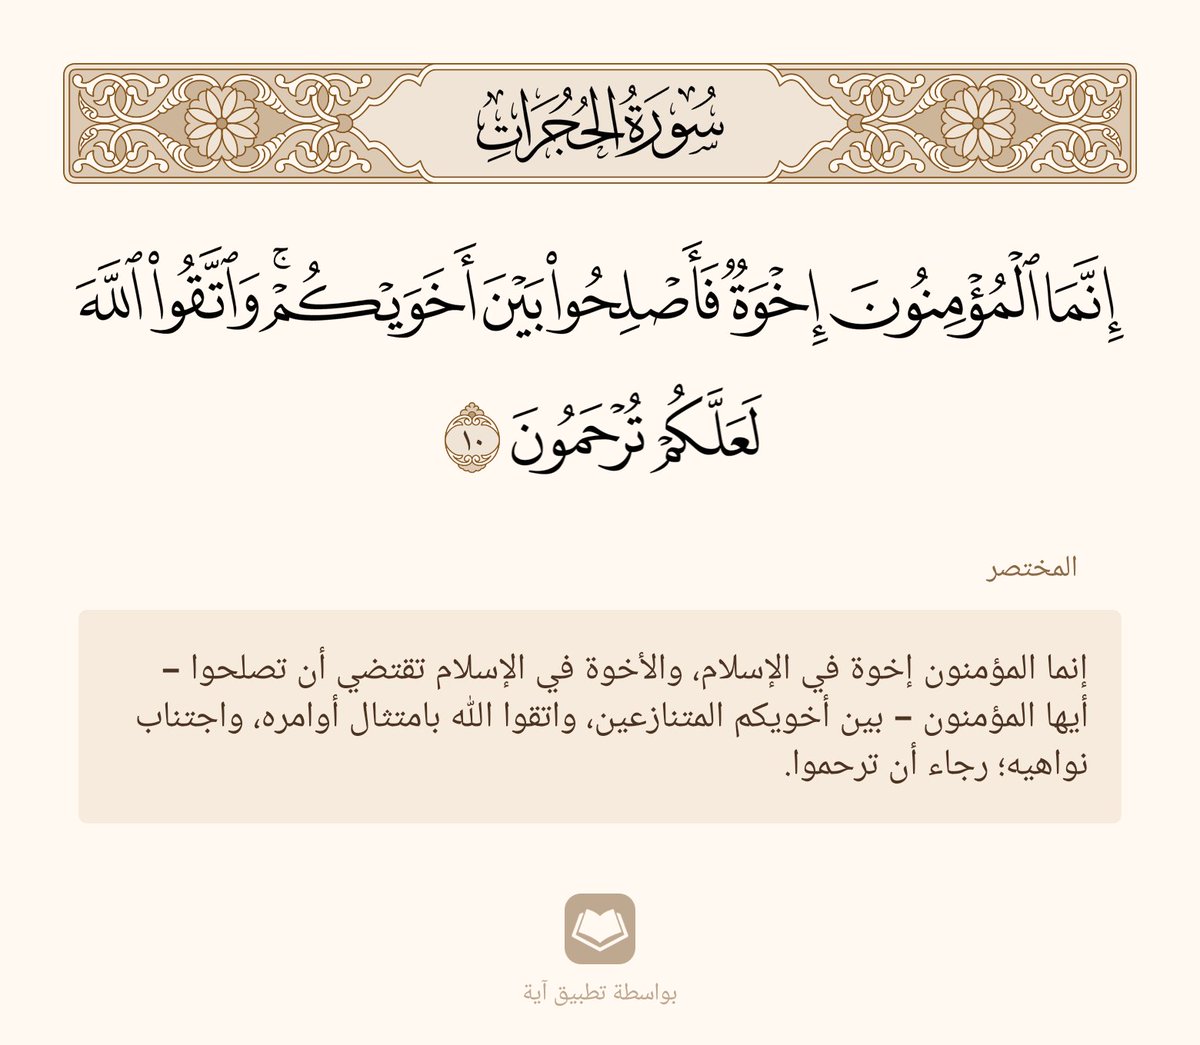 سُورَةُ الحُجُرَاتِ
إِنَّمَا ٱلْمُؤْمِنُونَ إِخْوَةٌ فَأَصْلِحُوا۟ بَيْنَ أَخَوَيْكُمْ ۚ وَٱتَّقُوا۟ ٱللَّهَ
لَعَلَّكُمْ تُرْحَمُونَ ١٠
المختصر
إنما المؤمنون إخوة في الإسلام، والأخوة في الإسلام تقتضي أن تصلحوا –
أيها المؤمنون – بين أخويكم المتنازعين، واتقوا الله بامتثال أوامره، واجتناب
نواهيه؛ رجاء أن ترحموا.
بواسطة تطبيق آية